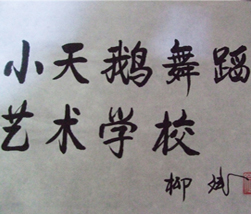 小天鹅舞蹈
艺术学校
柳斌